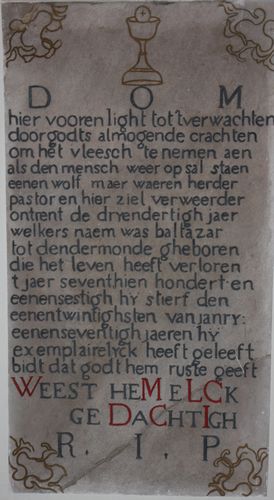 D O M
hier vooren light tot 'tverwachten
door godts almogende crachten
om het vleesch te nemen aen
als den mensch weer op sal staen
eenen wolf maer waeren herder
pastor en hier ziel verweerder
ontrent de dryendertigh jaer
welkers naem was baltazar
tot dendermonde gheboren
die het leven heeft verloren
t jaer seventhien hondert en
eenensestigh hy stierf den
eenentwintighsten van janry:
eenenseventigh jaeren hy
exemplairelyck heeft geleeft
bidt dat godt hem ruste geeft
WEEST HEMELCK
GEDACHTIGH
R . I . P